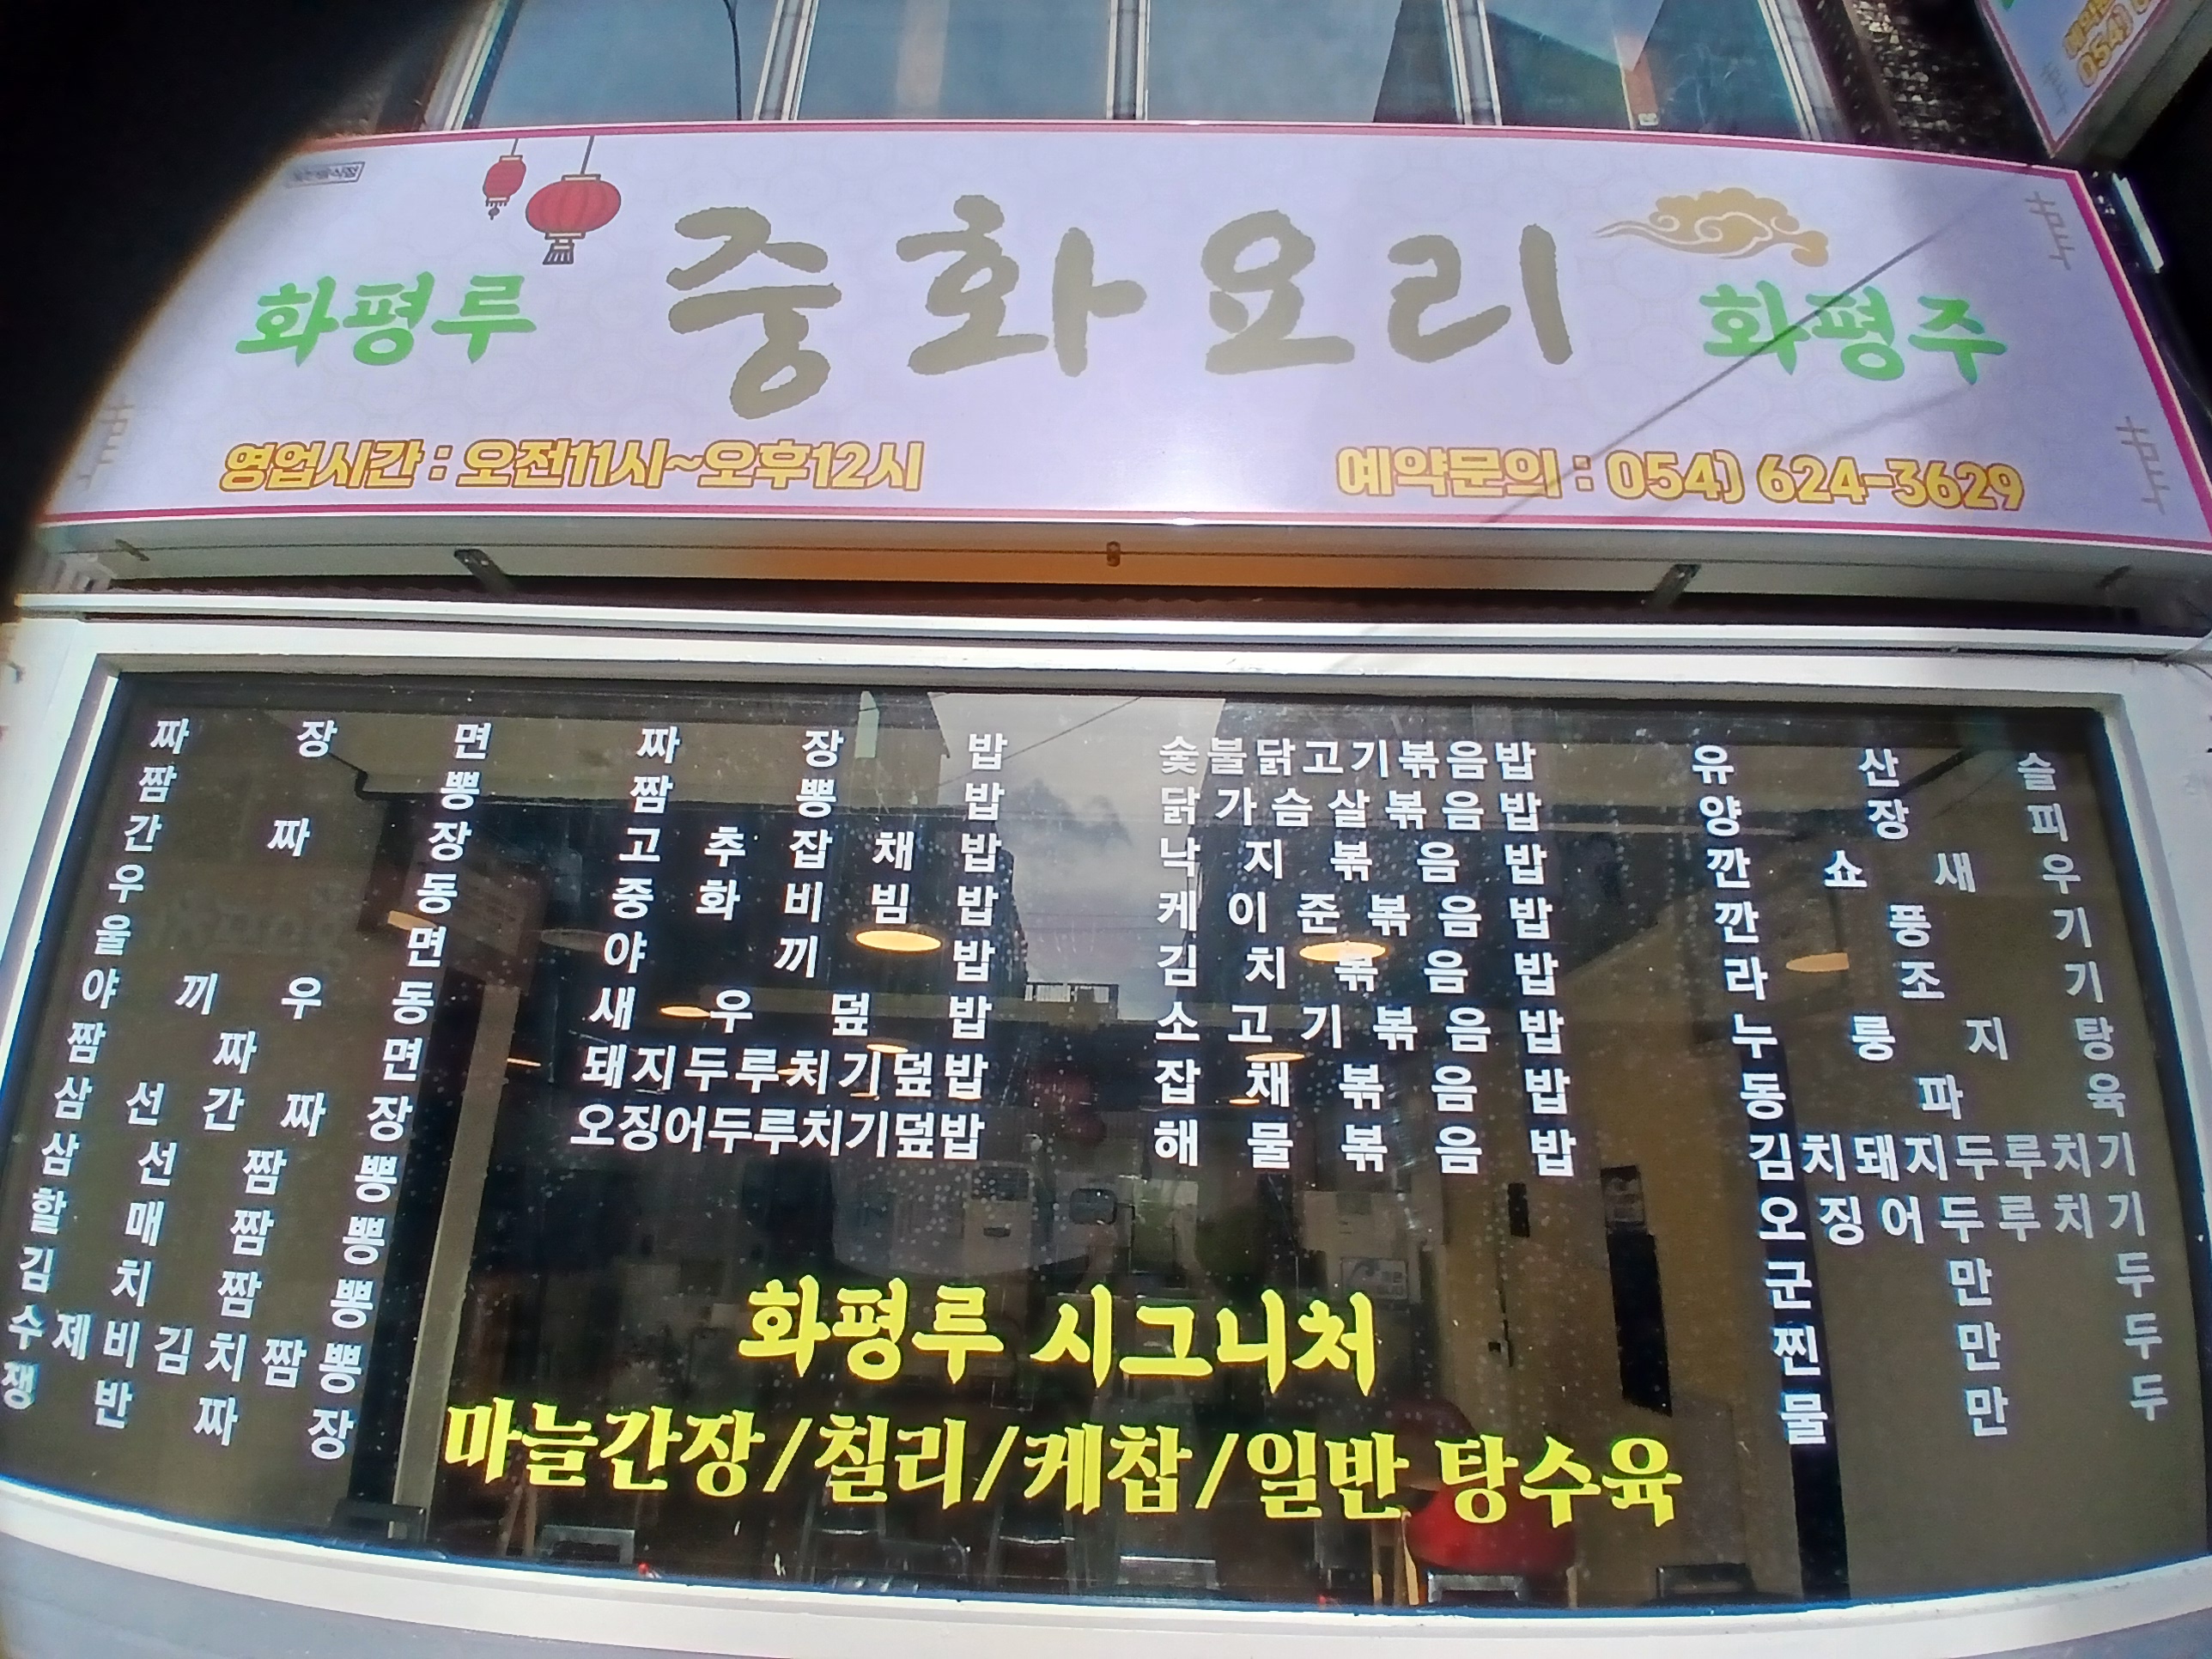 일반음식점
화평루 중화요리 화평주
영업시간 : 오전11시~오후12시
예약문의 : 054) 624-3629
짜장면
짬뽕
간짜장
우동
울면
야끼우동
짬짜면
삼선간짜장
삼선짬뽕
할매짬뽕
김치짬뽕
수제비김치짬뽕
쟁반짜장
짜장밥
짬뽕밥
고추잡채밥
중화비빔밥
야끼밥
새우덮밥
돼지두루치기덮밥
오징어두루치기덮밥
숯불닭고기볶음밥
닭가슴살볶음밥
낙지볶음밥
케이준볶음밥
김치볶음밥
소고기볶음밥
잡채볶음밥
해물볶음밥
유산슬
양장피
깐쇼새우
깐풍기
라조기
누룽지탕
동파육
김치돼지두루치기
오징어두루치기
군만두
찐만두
물만두
화평루 시그니처
마늘간장/칠리/케찹/일반 탕수육